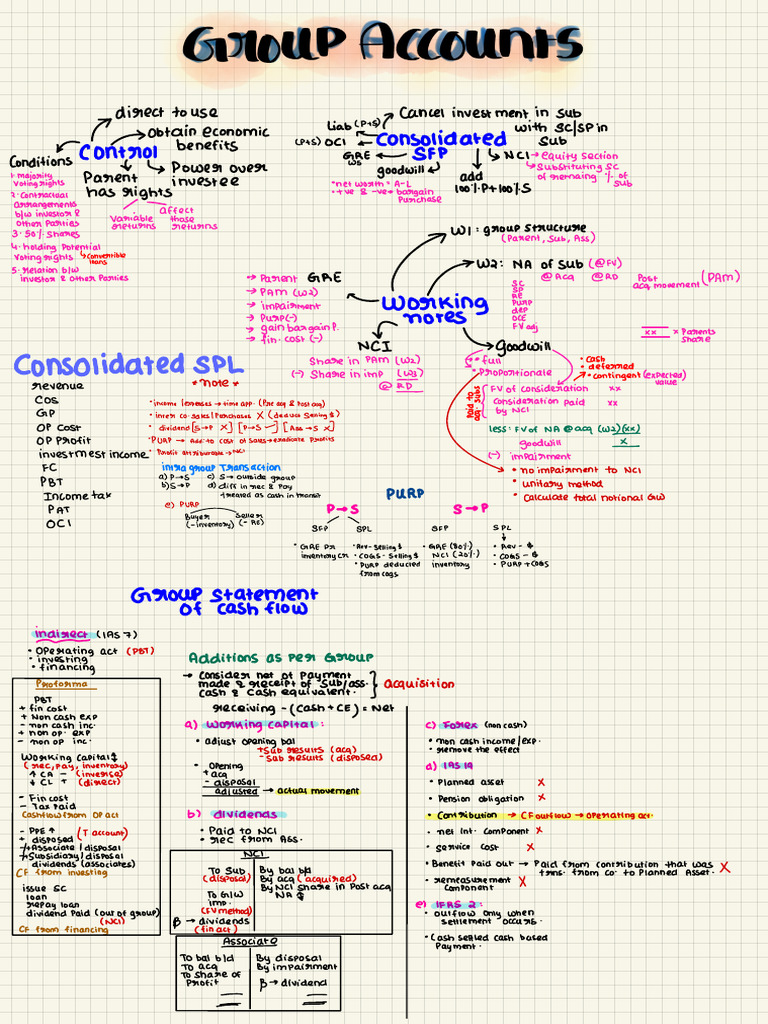 GROUP ACCOUNTS
direct to use
obtain economic
benefits
Control
Power over
investee
Parent
has rights
variable
returns
affect
those
returns
Conditions
1. majority
voting rights
2. Contractual
arrangements
b/w investor &
Other Parties
3. 50% shares
4. holding Potential
voting rights
convertible
loans
5. relation b/w
investor & Other Parties
Cancel investment in sub
with SC/SP in
sub
Liab (P+S)
(P+S) OCI
Consolidated
SFP
GRE
W5
goodwill
"net worth" A-L
+ve & -ve → bargain
Purchase
add
100% P + 100% S
NCI → equity section
Substituting SC
of remaing % of
sub
W1: group structure
(Parent, Sub, Ass)
W2: NA of Sub (@FV)
@Acq @RD Post
acq movement (PAm)
SC
SP
RE
PURP
dep
OCE
FV adj
xx x Parents
Share
Working
notes
→ Parent GRE
→ PAM (W2)
→ impairment
→ PURP (-)
→ gain bargain P.
→ fin. cost (-)
NCI
Share in PAM (W2)
(-) Share in imp (W3)
@ RD
Goodwill
• full
• Proportionate
• cash
• deferred
• contingent (expected)
value
Paid to
acq. subs
FV of consideration xx
consideration paid xx
by NCI
less: FV of NA @ acq (W2) (xx)
goodwill x
(-) impairment
• no impairment to NCI
• unitary method
• Calculate total notional GW
Consolidated SPL
revenue
COS
GP
OP Cost
OP Profit
investmest income
FC
PBT
Income tax
PAT
OCI
*note*
• income/expenses → time app. (Pre acq & Post acq)
• inter co. sales/Purchases X (deduct selling $)
• dividend [S→P X] [P→S ✓] [Ass→S X]
• PURP → Add to cost of sales → eradicate profits
• Profit attributable → NCI
intra group Transaction
a) P→S c) S→outside group
b) S→P d) diff in rec & Pay
treated as cash in transit
e) PURP
Buyer
(-inventory)
Seller
(-RE)
PURP
P→S
SFP SPL
• GRE Dr
inventory Cr
• Rev - selling $
• COGS - selling $
• PURP deducted
from cogs
S→P
SFP SPL
• GRE (80%)
NCI (20%)
inventory
• Rev - $
• COGS - $
• PURP + COGS
Group statement
of cash flow
indirect (IAS 7)
• Operating act (PBT)
• investing
• financing
Proforma
PBT
+ fin cost
+ Non cash exp
- non cash inc.
+ non op. exp
- non op inc.
Working capital
(rec, pay, inventory)
↑ CA - (inverse)
↑ CL + (direct)
- Fin cost
- Tax paid
Cashflow from OP act
- PPE ↑ (T account)
+ disposed
Associate / disposal
Subsidiary / disposal
dividends (associates)
CF from investing
issue SC
loan
repay loan
dividend Paid (out of group)
(NCI)
CF from financing
Additions as per Group
→ Consider net of payment
made & receipt of sub/ass.
cash & cash equivalent.
acquisition
receiving - (cash + CE) = Net
a) Working capital:
• adjust opening bal
+ Sub results (acq)
- Sub results (disposed)
• Opening
+ acq
- disposal
adjusted → actual movement
b) dividends
• Paid to NCI
• rec from Ass.
NCI
To Sub
(disposal)
To G/W
imp.
(FV method)
β → dividends
(fin act)
By bal b/d
By acq (acquired)
By NCI share in Post acq
NA
Associate
To bal b/d
To acq
To share of
Profit
By disposal
By impairment
β → dividend
c) Forex (non cash)
• non cash income/exp.
• remove the effect
d) IAS 19
• Planned asset X
• Pension obligation X
• Contribution → CF outflow → operating act.
• net int. component X
• service cost X
• Benefit Paid out → Paid from contribution that was
trns. from co. to Planned Asset. X
• remeasurement
component X
e) IFRS 2:
• Outflow only when
settlement occurs.
• Cash settled cash based
Payment.